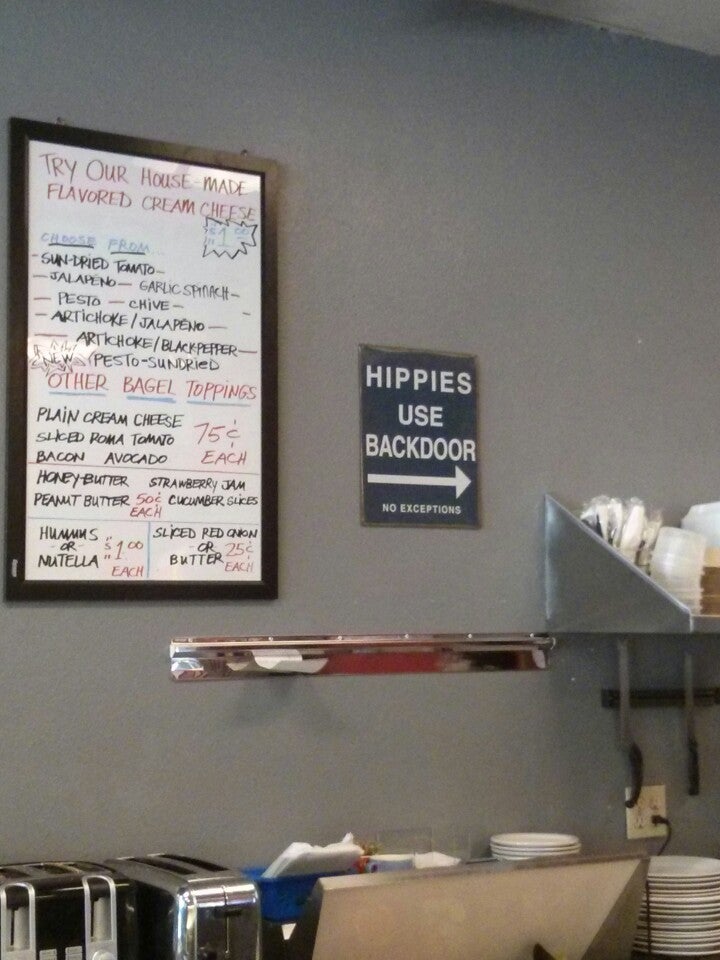 TRY OUR HOUSE-MADE
FLAVORED CREAM CHEESE
$1.00
CHOOSE FROM...
-SUN-DRIED TOMATO-
-JALAPEÑO - GARLIC SPINACH-
- PESTO - CHIVE -
- ARTICHOKE/JALAPEÑO -
- ARTICHOKE/BLACKPEPPER -
NEW PESTO-SUNDRIED
OTHER BAGEL TOPPINGS
PLAIN CREAM CHEESE
SLICED ROMA TOMATO
BACON AVOCADO
75¢
EACH
HONEY-BUTTER STRAWBERRY JAM
PEANUT BUTTER 50¢ CUCUMBER SLICES
EACH
HUMMUS
-OR-
NUTELLA
"$1.00"
EACH
SLICED RED ONION
-OR-
BUTTER
25¢
EACH
HIPPIES
USE
BACKDOOR
NO EXCEPTIONS